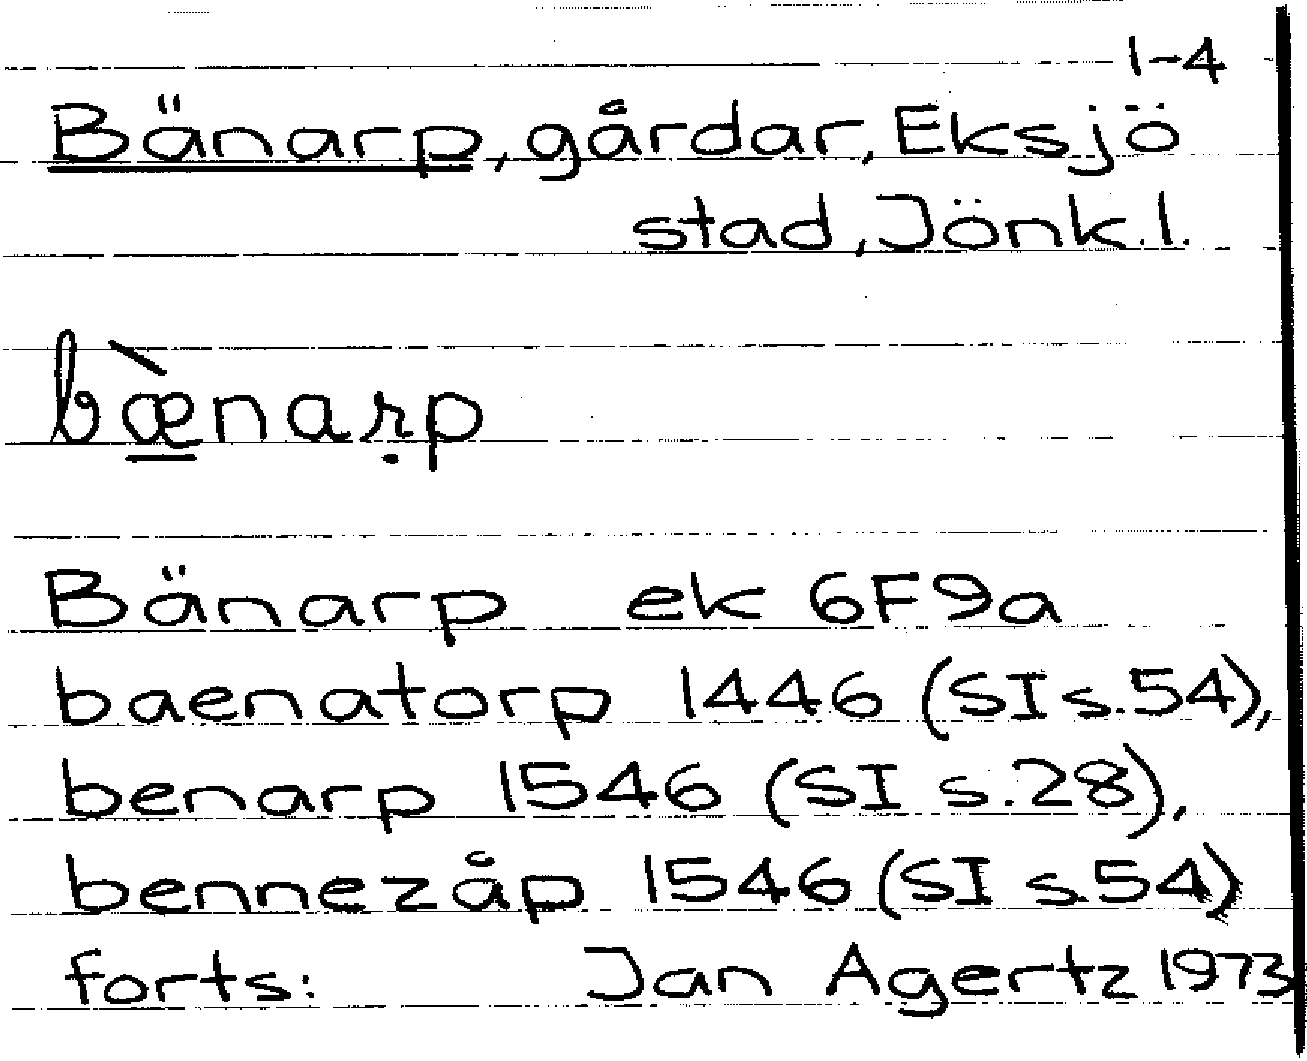 1-4
Bänarp, gårdar, Eksjö
stad, Jönk.l.
bæ̀narp
Bänarp ek 6F9a
baenatorp 1446 (SI s.54),
benarp 1546 (SI s.28),
bennezåp 1546 (SI s.54)
forts: Jan Agertz 1973